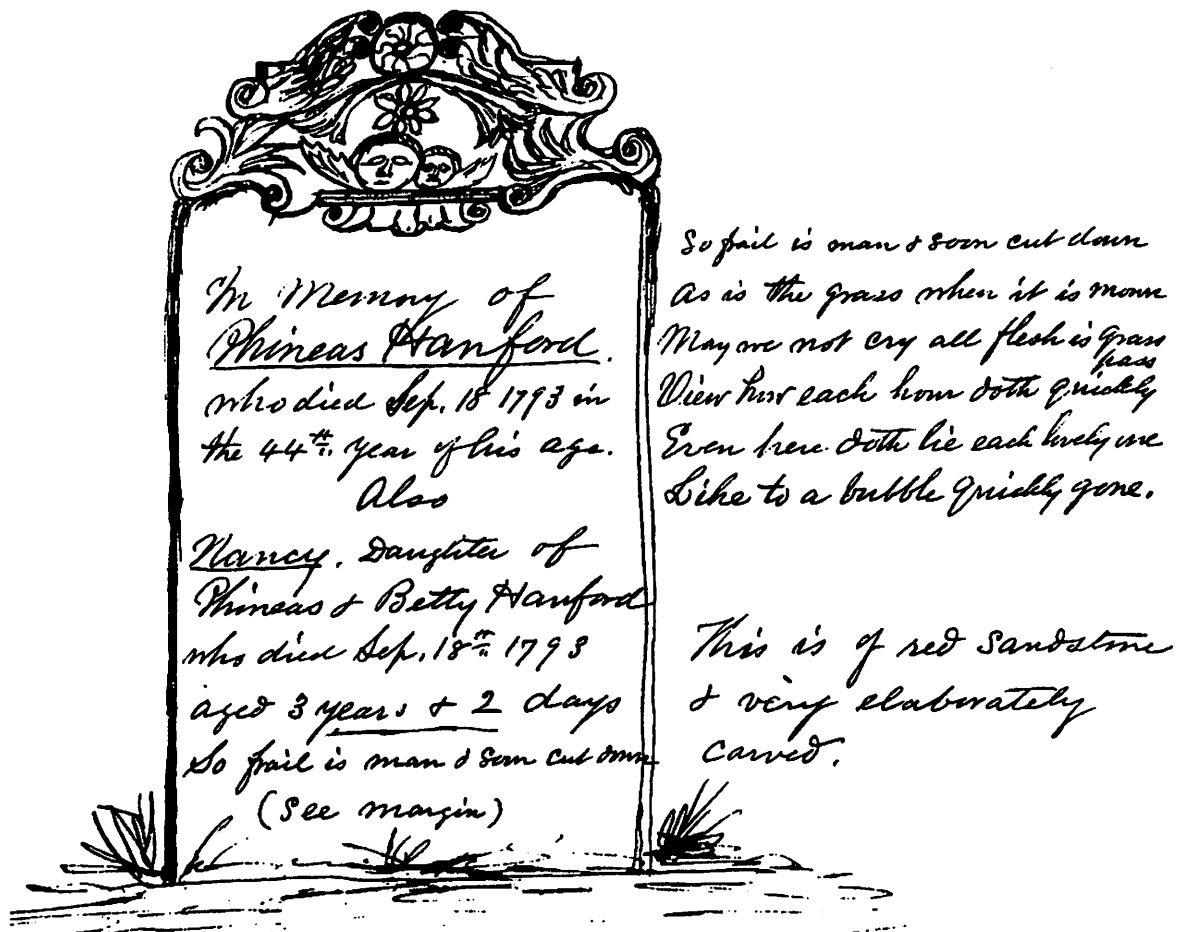 In Memory of
Phineas Hanford.
who died Sep. 18 1793 in
the 44th. year of his age.
Also
Nancy. Daughter of
Phineas & Betty Hanford
who died Sep. 18th. 1793
aged 3 years & 2 days
So frail is man & soon cut down
(See margin)
So frail is man & soon cut down
As is the grass when it is mown
May we not cry all flesh is grass
View how each hour doth quickly pass
Even here doth lie each lovely one
Like to a bubble quickly gone.
This is of red sandstone
& very elaborately
carved.